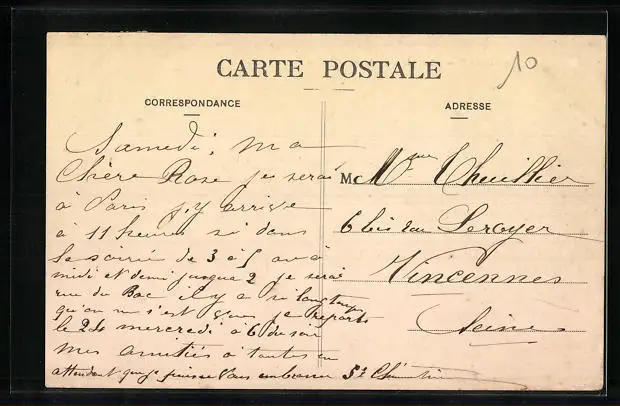 10
CARTE POSTALE
CORRESPONDANCE
ADRESSE
Samedi, ma
Chère Rose je serai
à Paris j'y arrive
à 11 heures si dans
la soirée de 3 à 5
midi et demi jusque 2 je serai
rue du Bac il y a si longtemps
qu'on ne s'est je repars
le mercredi à 6 du soir
Mes amitiés à toutes en
attendant que je puisse vous embrasser
M Mme Thuillier
6 bis rue Leroyer
Vincennes
Seine